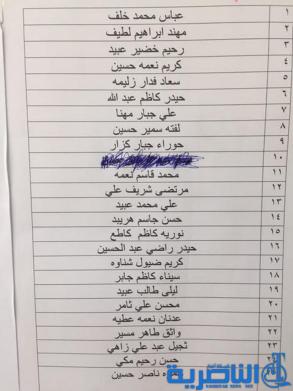 ١ عباس محمد خلف
٢ مهند ابراهيم لطيف
٣ رحيم خضير عبيد
٤ كريم نعمه حسين
٥ سعاد فدار زليمه
٦ حيدر كاظم عبد الله
٧ علي جبار مهنا
٨ لفته سمير حسين
٩ حوراء جبار كزار
١٠
١١ محمد قاسم نعمه
١٢ مرتضى شريف علي
١٣ علي محمد عبيد
١٤ حسن جاسم هربيد
١٥ نوريه كاظم كاطع
١٦ حيدر راضي عبد الحسين
١٧ كريم ضيول شناوه
١٨ سيناء كاظم جابر
١٩ ليلى طالب عبيد
٢٠ محسن علي ثامر
٢١ عدنان نعمه عطيه
٢٢ واثق طاهر مسير
٢٣ ثجيل عبد علي زاهي
حسن رحيم مكي
ناصر حسين
الناصرية